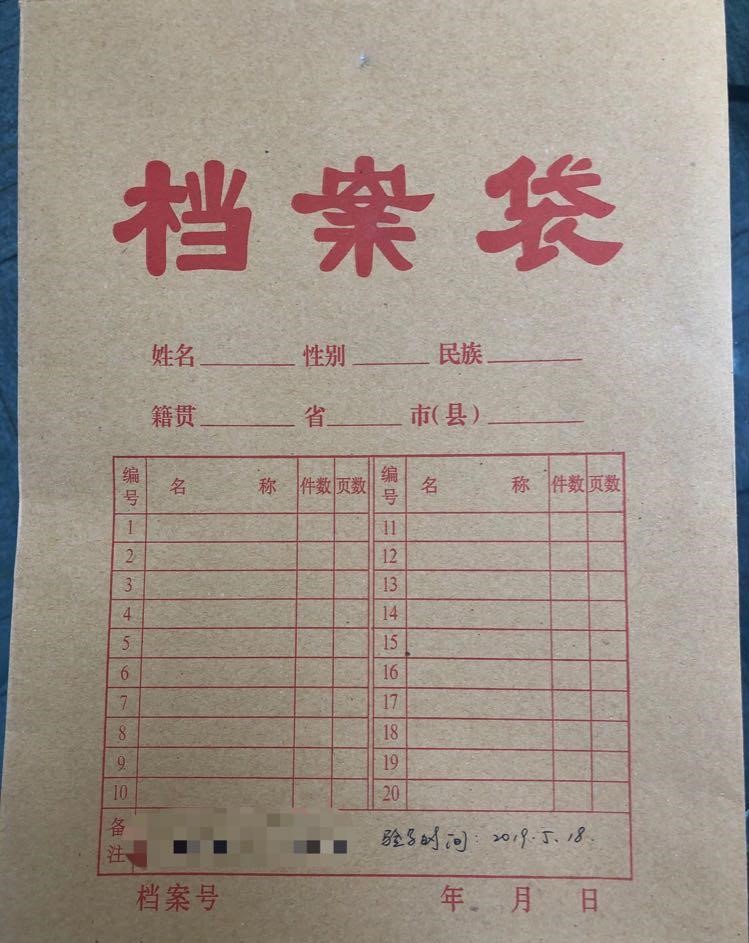 档案袋
姓名 性别 民族
籍贯 省 市(县)
编号 名称 件数 页数 编号 名称 件数 页数
1 11
2 12
3 13
4 14
5 15
6 16
7 17
8 18
9 19
10 20
备注 时间: 2019.5.18.
档案号 年 月 日